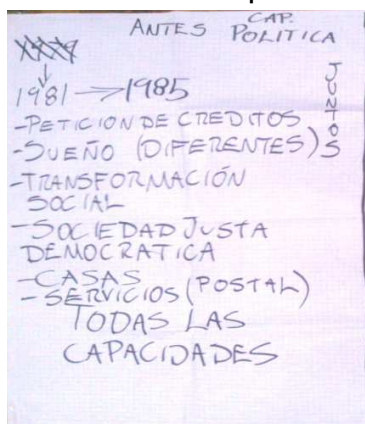 ANTES CAP. POLITICA
1981 → 1985
JUNTOS
-PETICION DE CREDITOS
-SUEÑO (DIFERENTES)
-TRANSFORMACIÓN
SOCIAL
-SOCIEDAD JUSTA
DEMOCRATICA
-CASAS
-SERVICIOS (POSTAL)
TODAS LAS
CAPACIDADES